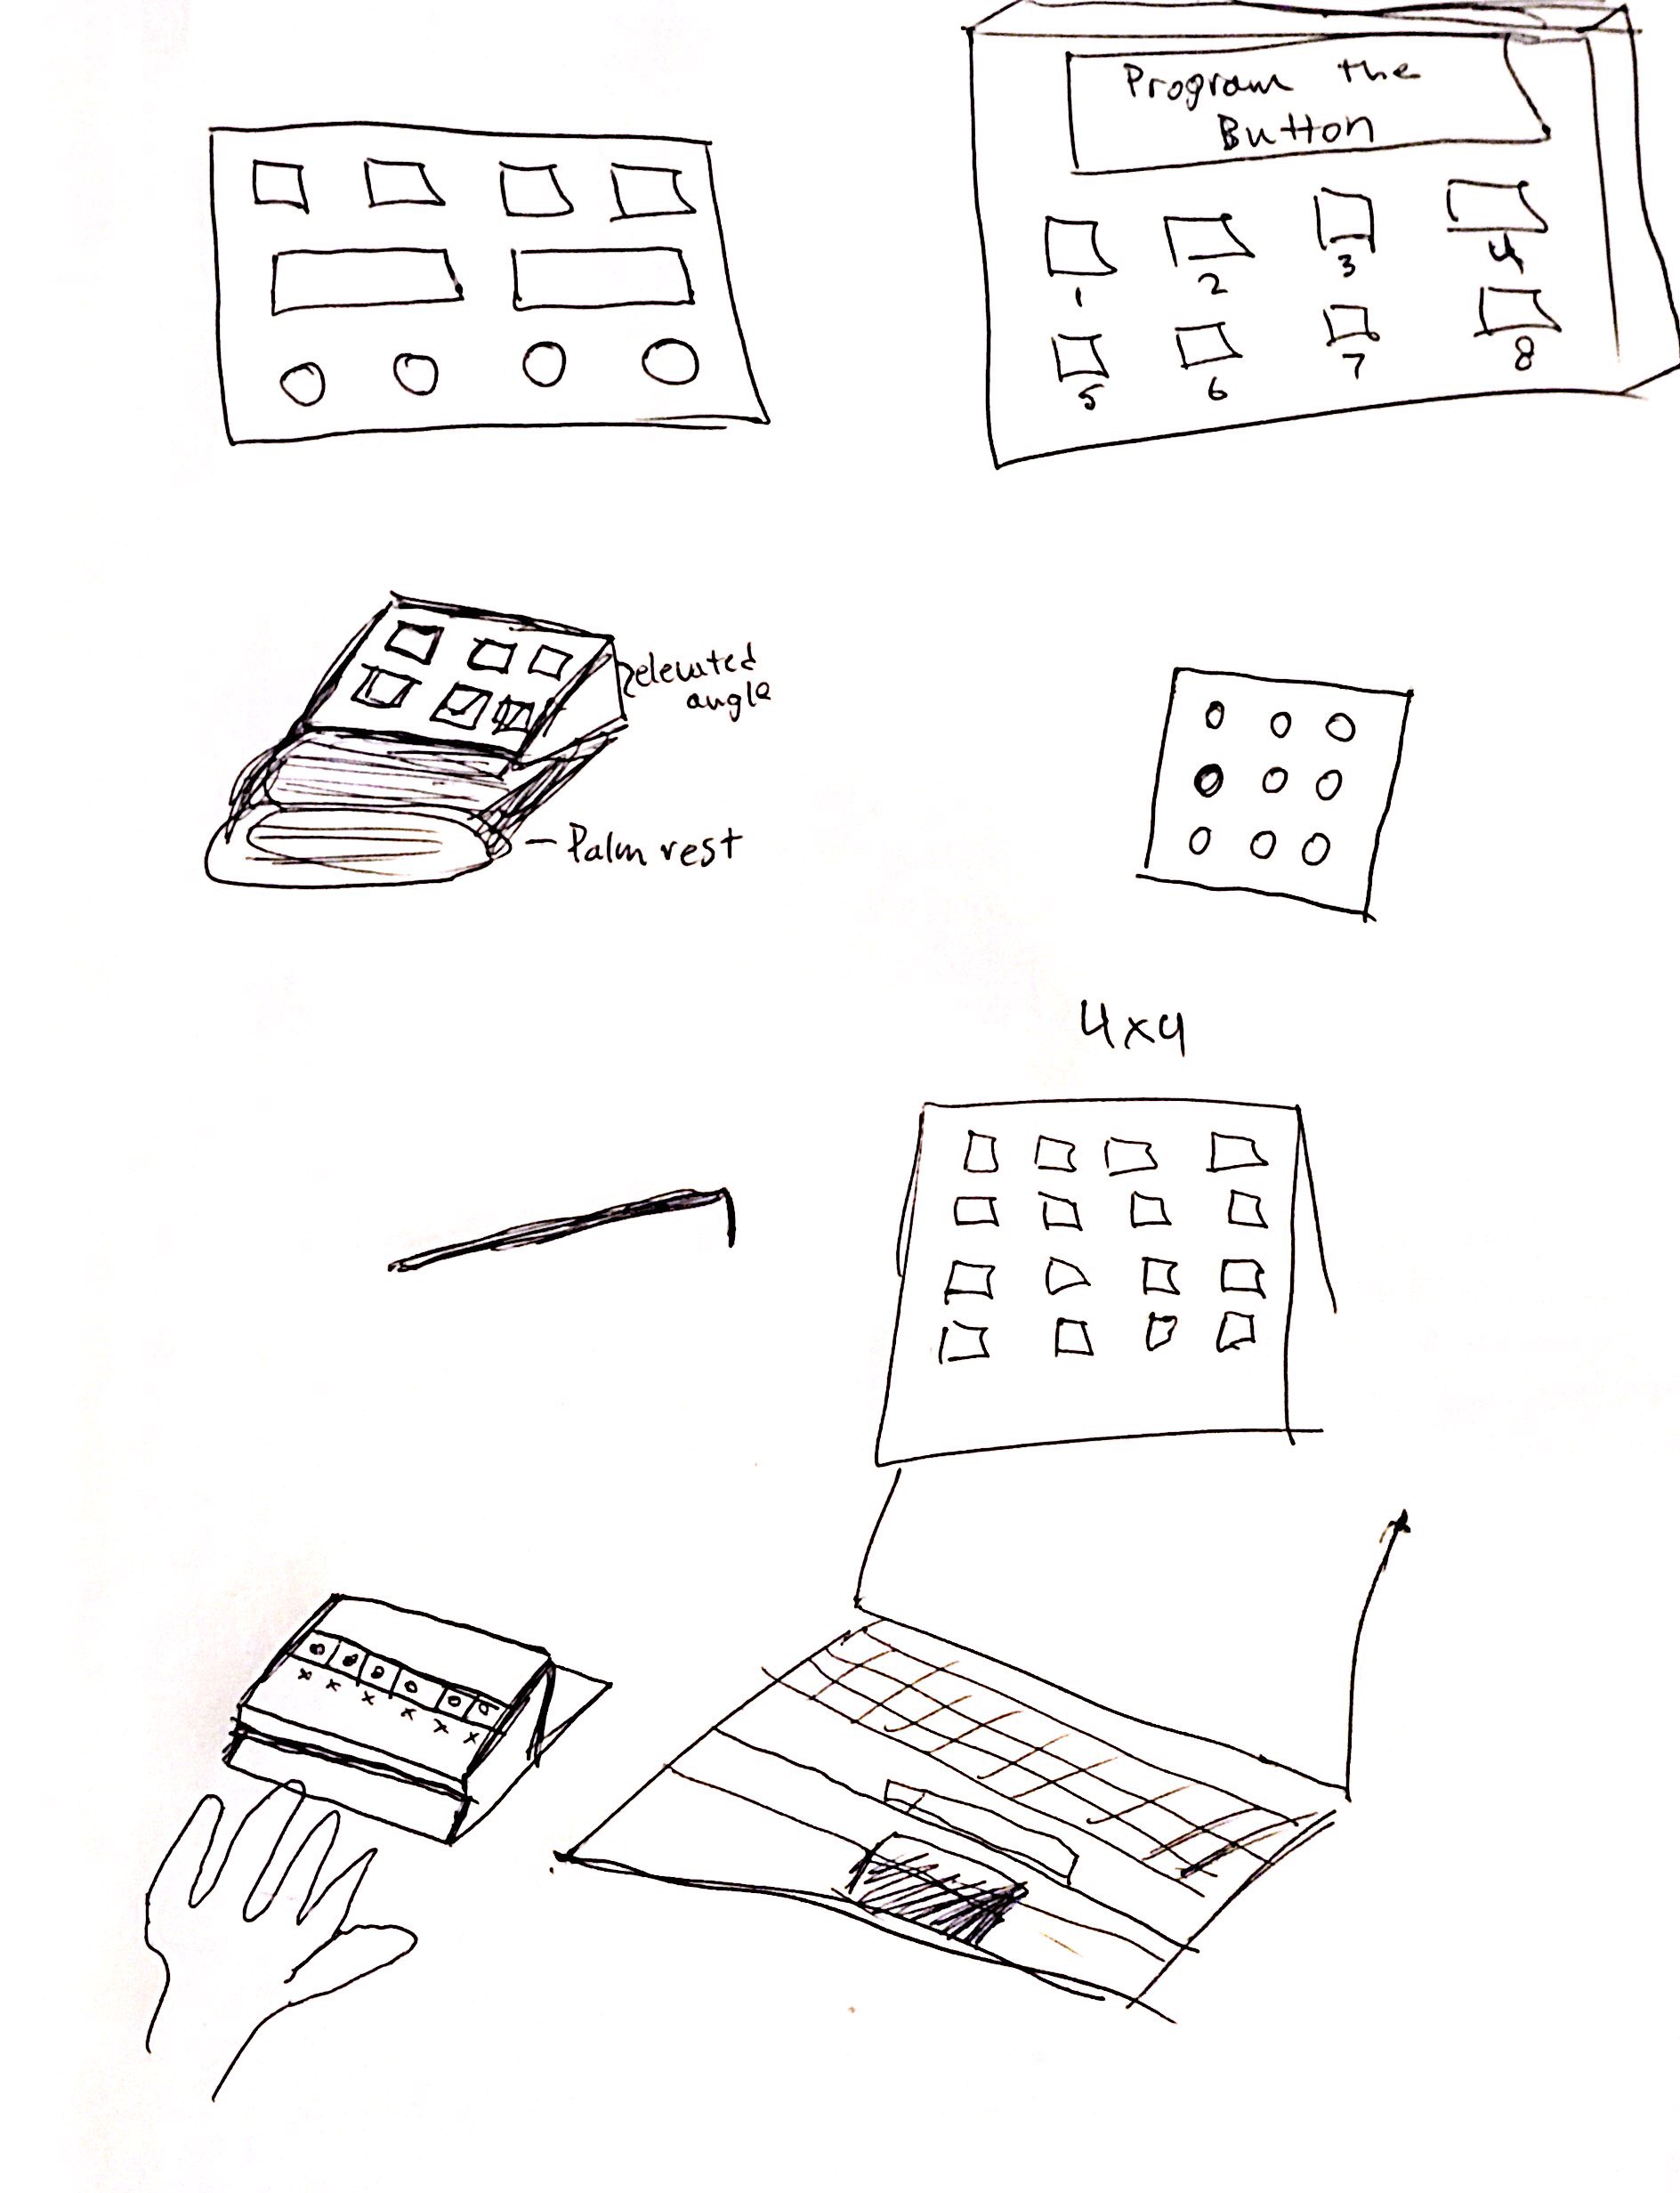 Program the
Button
1 2 3 4
5 6 7 8
elevated
angle
Palm rest
4x4
x x x x x x